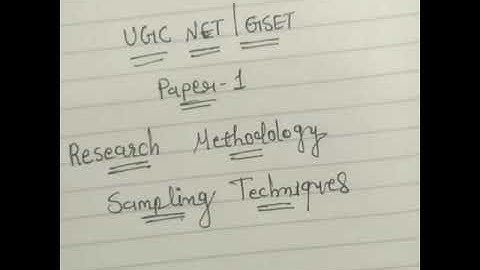 UGC NET | GSET
Paper-1
Research Methodology
Sampling Techniques